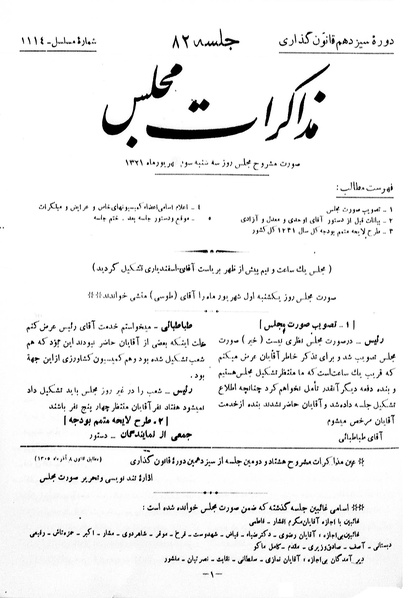 دورهٔ سیزدهم قانون گذاری
جلسه ۸۲
شمارهٔ مسلسل - ۱۱۱۴
مذاکرات مجلس
صورت مشروح مجلس روز سه شنبه سوم شهریور ماه ۱۳۲۱
فهرست مطالب:
۱ - تصویب صورت مجلس
۲ - بیانات قبل از دستور آقای اوحدی و معدل و آزادی
۳ - طرح لایحه متمم بودجه کل سال ۱۳۲۱ کل کشور
۴ - اعلام اسامی اعضاء کمیسیونهای خاص و عرایض و مبتکرات
۵ - موقع و دستور جلسه بعد - ختم جلسه
( مجلس یک ساعت و نیم پیش از ظهر بریاست آقای اسفندیاری تشکیل گردید )
صورت مجلس روز یکشنبه اول شهریور ماه را آقای ( طوسی ) منشی خواندند ⁂
[ ۱ - تصویب صورت مجلس ]
رئیس - در صورت مجلس نظری نیست ( خیر ) صورت
مجلس تصویب شد و برای تذکر خاطر آقایان عرض میکنم
که قریب یک ساعت است که ما منتظر تشکیل مجلس هستیم
و بنده دفعه دیگر آنقدر تأمل نخواهم کرد چنانچه اطلاع
تشکیل جلسه داده شد و آقایان حاضر نشدند بنده از خدمت
آقایان مرخص میشوم
آقای طباطبائی
طباطبائی - میخواستم خدمت آقای رئیس عرض کنم
علت اینکه بعضی از آقایان حاضر نبودند این بود که هم
شعب تشکیل شده بود و هم کمیسیون کشاورزی از این جهة
بود.
رئیس - شعب را در غیر روز مجلس باید تشکیل داد
نمیشود هفتاد نفر آقایان منتظر چهار پنج نفر باشند
[ ۲ - طرح لایحه متمم بودجه ]
جمعی از نمایندگان - دستور
⁂ عین مذاکرات مشروح هشتاد و دومین جلسه از سیزدهمین دورهٔ قانون گذاری
(مطابق قانون ۸ آذرماه ۱۳۰۵)
ادارهٔ تند نویسی و تحریر صورت مجلس
⁂ اسامی غائبین جلسه گذشته که ضمن صورت مجلس خوانده شده است :
غائبین با اجازه آقایان مکرم افشار - فاطمی
غائبین بی اجازه : آقایان رضوی - دکتر ضیاء - فیاض - شهدوست - فرخ - موقر - شاهرودی - مشار - اکبر - حمزه تاش - رفیعی
دبستانی - آصف - صادق وزیری - مقدم - کامل ماکو
دیر آمدگان بی اجازه : آقایان نمازی - سلطانی - نقابت - نصرتیان - منشور
- ۱ -